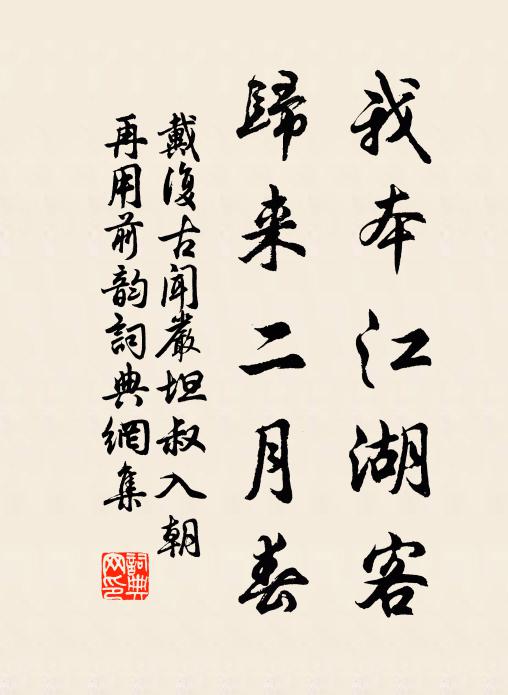 我本江湖客
歸来二月春
戴復古聞嚴坦叔入朝
再用前韵詞典網集
詞典网印